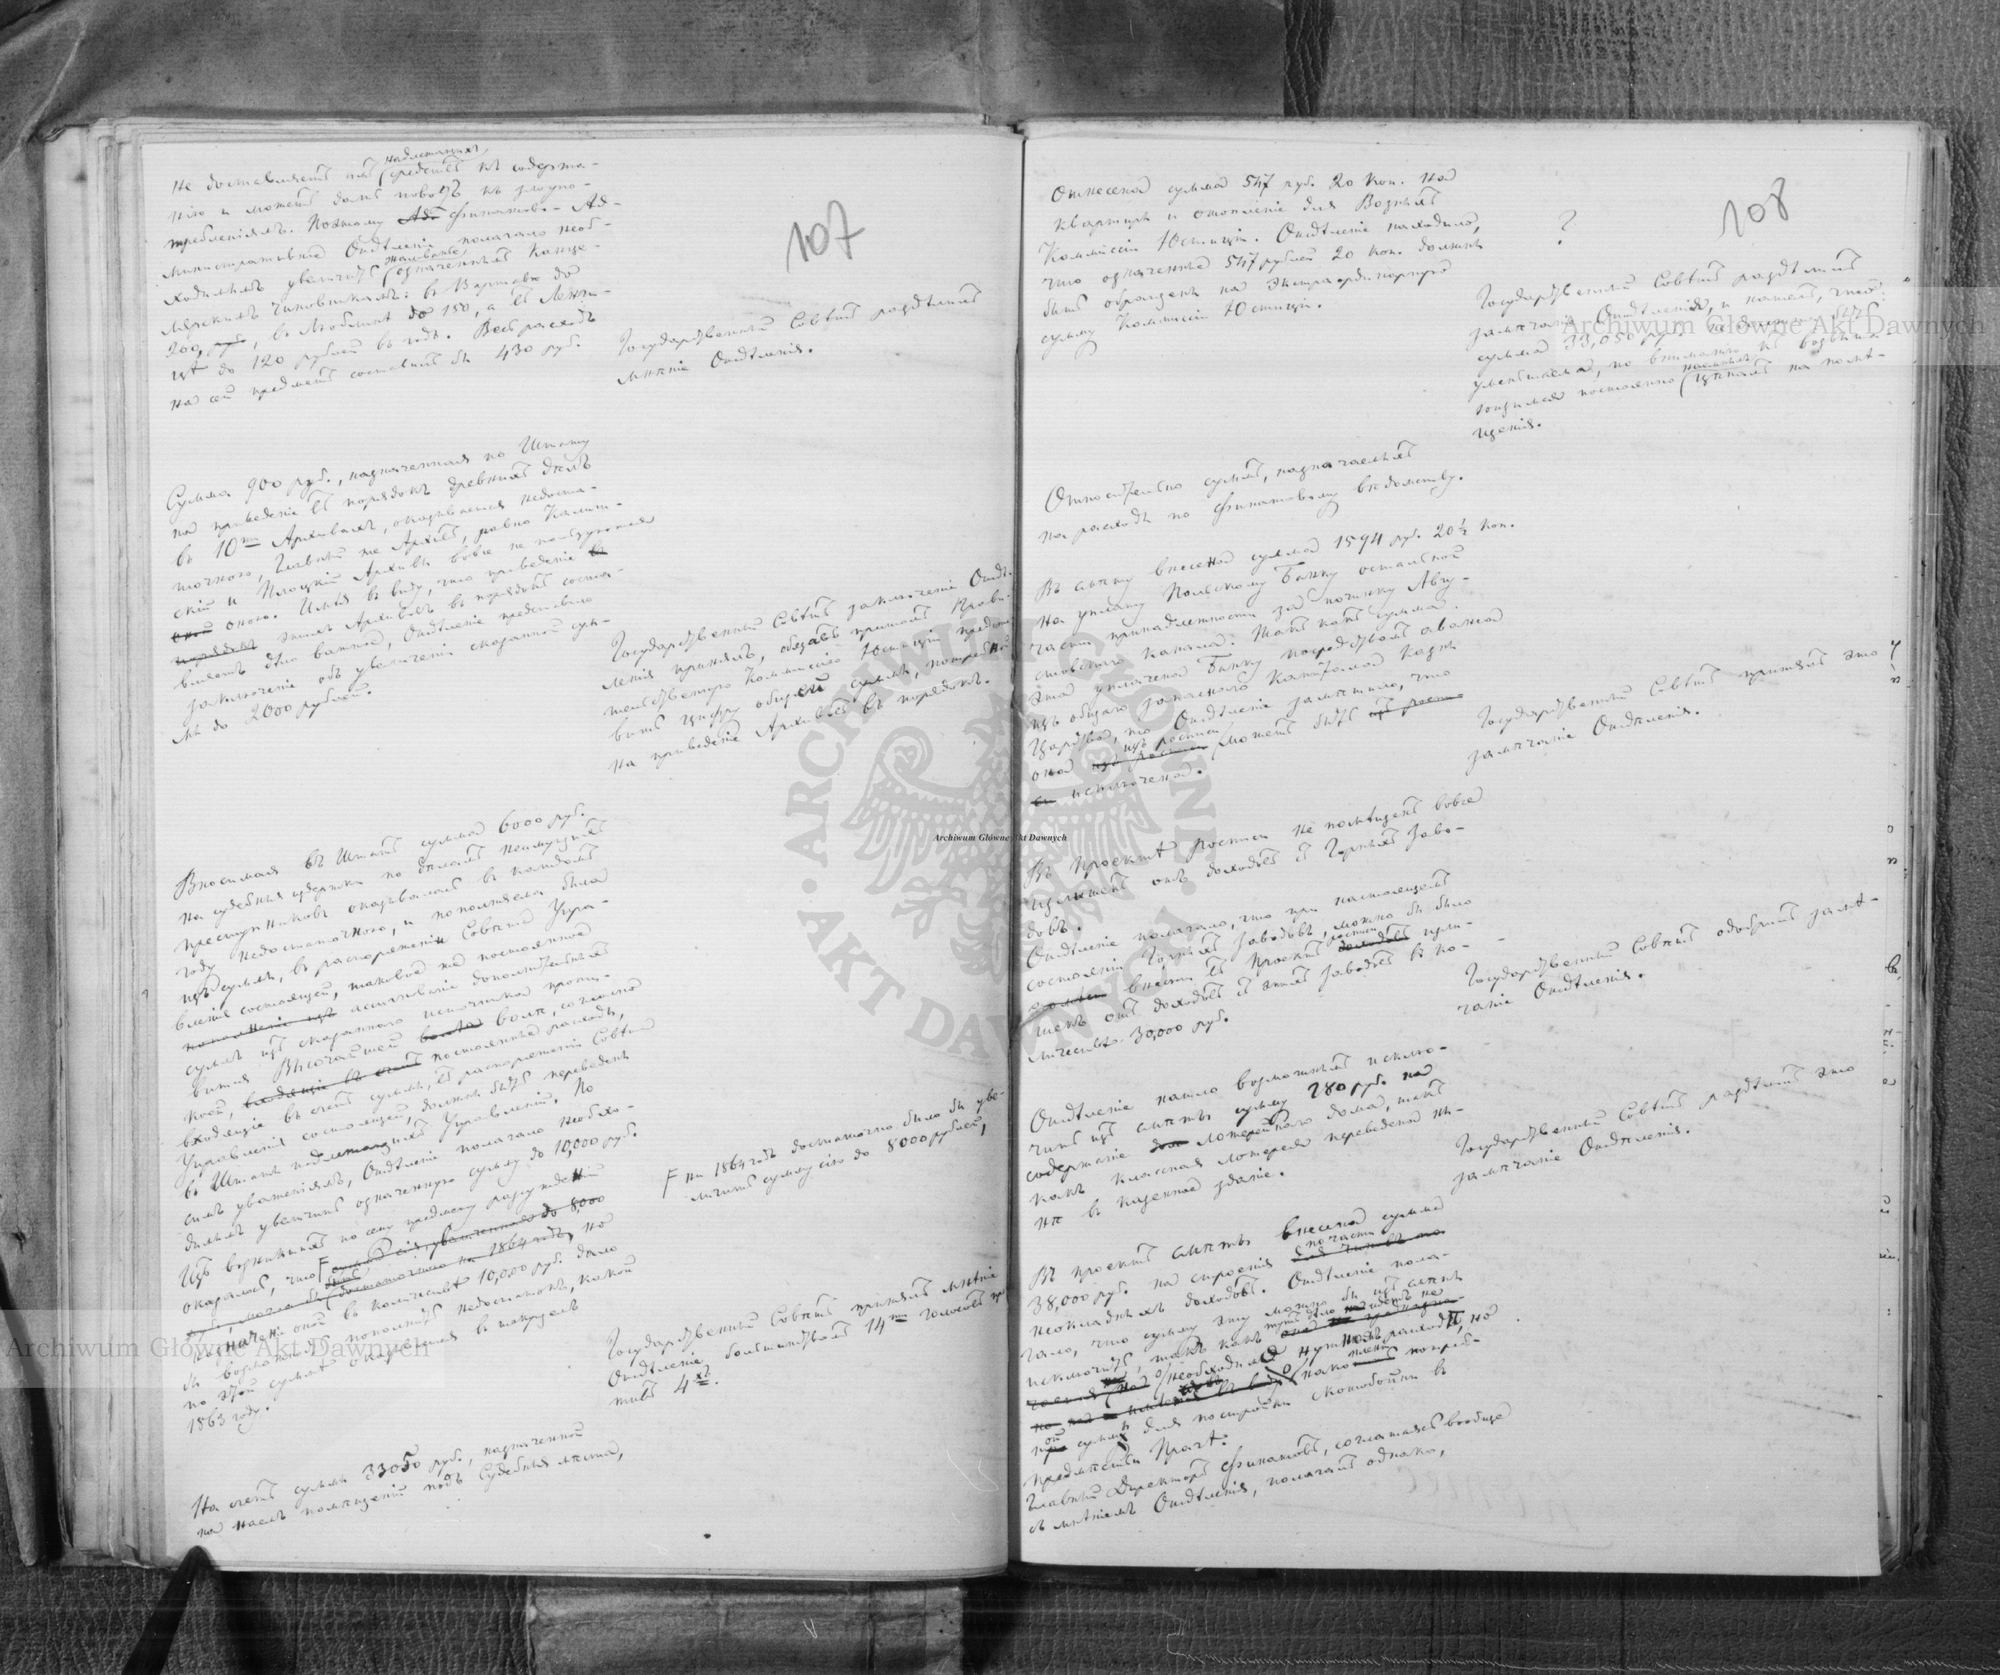 107
надлежащихъ
не доставляетъ имъ средствъ къ содержа-
нію и можетъ дать поводъ къ злоупо-
требленіямъ. Поэтому Финансово-Ад-
министративное Отдѣленіе полагало необ-
жалованье
ходимымъ увеличить означеннымъ Канце-
лярскимъ чиновникамъ: въ Варшавѣ до
200, въ Люблинѣ до 150, а въ
до 120 рублей въ годъ. Весь расходъ
на сей предметъ составилъ бы 430 руб.
Государственный Совѣтъ раздѣлилъ
мнѣніе Отдѣленія.
Сумма 900 руб., назначенная по Штату
на приведеніе въ порядокъ древнихъ дѣлъ
въ 10ти Архивахъ, оказывается недоста-
точною, Главный же Архивъ, равно Калиш-
скій и Плоцкій Архивы вовсе не пользуются
оною. Имѣя въ виду, что приведеніе
порядокъ этихъ Архивовъ въ порядокъ состав-
ляетъ дѣло важное, Отдѣленіе представило
заключеніе объ увеличеніи сказанной сум-
мы до 2000 рублей.
Государственный Совѣтъ заключеніе Отдѣ-
ленія принялъ, обязавъ притомъ Прави-
тельственную Коммисію Юстиціи предста-
вить цифру общей суммы, потребной
на приведеніе Архивовъ въ порядокъ.
Вносимая въ Штатъ сумма 6000 руб.
на судебныя издержки по дѣламъ неимущихъ
преступниковъ оказывалась въ каждомъ
году недостаточною, и пополняема была
изъ суммъ, въ распоряженіи Совѣта Упра-
вленія состоящей, таковое же постоянное
пополненіе изъ ассигнованіе дополнительныхъ
суммъ изъ сказаннаго источника проти-
вится Высочайшей волѣ, согласно
коей, входящіе въ счетъ постоянные расходы,
входящіе въ счетъ суммы, въ распоряженіи Совѣта
Управленія состоящей, должны быть переведены
въ Штаты подлежащихъ Управленій. По
симъ уваженіямъ, Отдѣленіе полагало необхо-
димымъ увеличить означенную сумму до 10,000 руб.
Изъ возникшихъ по сему предмету разсужденій
оказалось, что F сумма сія увеличенная до 8,000
руб., могла бы быть достаточною на 1864 годъ, но
назначеніи оной въ количествѣ 10,000 руб. дало
бы возможность пополнить недостатокъ, какой
по этой суммѣ оказывался въ текущемъ
1863 году.
F на 1864 годъ достаточно было бы уве-
личить сумму сію до 8000 рублей,
Государственный Совѣтъ принялъ мнѣніе
Отдѣленіе большинствомъ 14ти голосовъ про-
тивъ 4хъ.
На счетъ суммы 33050 руб., назначенной
на наемъ помѣщеній подъ Судебныя мѣста,
108
отнесена сумма 547 руб. 20 коп. на
квартиры и отопленіе для Возныхъ
Коммисіи Юстиціи. Отдѣленіе находило,
что означенные 547 рублей 20 коп. должны
быть обращены на Экстраординарную
сумму Коммисіи Юстиціи.
?
Государственный Совѣтъ раздѣлилъ
замѣчаніе Отдѣленія, и нашелъ, что
сумма 33,050 руб. не должна быть
уменьшаема, по вниманію къ возвыша-
наемнымъ
ющимся постоянно цѣнамъ на помѣ-
щенія.
Относительно суммъ, назначаемыхъ
на расходъ по финансовому вѣдомству.
Въ смѣту внесена сумма 1594 руб. 20½ коп.
на уплату Польскому Банку остальной
части принадлежности за починку Авгу-
стовскаго канала. Такъ какъ сумма
эта уплачена Банку посредствомъ аванса
изъ общаго запаснаго Капитала казны
Царства, то Отдѣленіе замѣтило, что
изъ росписи
она можетъ быть
исключена.
Государственный Совѣтъ принялъ это
замѣчаніе Отдѣленія.
Въ Проектѣ росписи не помѣщенъ вовсе
излишекъ отъ доходовъ съ Горныхъ заво-
довъ.
Отдѣленіе полагало, что при настоящемъ
состояніи Горныхъ заводовъ, можно бы было
росписи
внести въ Проектъ доходовъ изли-
шекъ отъ доходовъ съ этихъ заводовъ въ ко-
личествѣ 30,000 руб.
Государственный Совѣтъ одобрилъ замѣ-
чаніе Отдѣленія.
Отдѣленіе нашло возможнымъ исклю-
чить изъ смѣты сумму 280 руб. на
содержаніе Лотерейнаго дома, такъ
какъ классная лотерея переведена ны-
нѣ въ казенное зданіе.
Государственный Совѣтъ раздѣлилъ это
замѣчаніе Отдѣленія.
Въ проектъ смѣты внесена сумма
по части
38,000 руб. на строенія
неокладныхъ доходовъ. Отдѣленіе пола-
гало, что сумму эту можно бы изъ смѣты
исключить, такъ какъ
необходимо нужныхъ расходовъ, но
потреб-
ной суммы для постройки скотобойни въ
предмѣстьи Прагѣ.
Главный Директоръ Финансовъ, соглашаясь вообще
съ мнѣніемъ Отдѣленія, полагалъ однако,
Archiwum Główne Akt Dawnych
Archiwum Główne Akt Dawnych
Archiwum Główne Akt Dawnych
ARCHIWUM GŁÓWNE AKT DAWNYCH